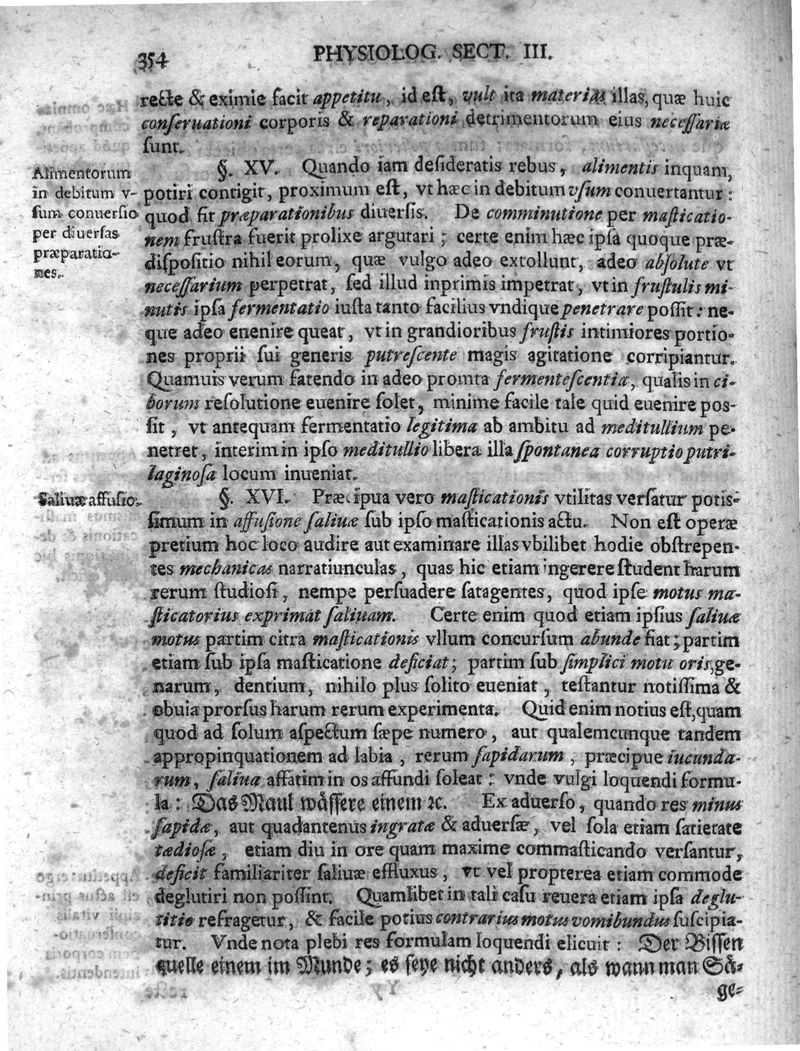 354
PHYSIOLOG. SECT. III.
recte & eximie facit appetitu, id eſt, vult ita materias illas, quæ huic
conſeruationi corporis & reparationi detrimentorum eius neceſſariæ
ſunt.
Alimentorum
in debitum v-
ſum conuerſio
per diuerſas
præparatio-
nes.
§. XV. Quando iam deſideratis rebus, alimentis inquam,
potiri contigit, proximum eſt, vt hæc in debitum vſum conuertantur:
quod fit præparationibus diuerſis. De comminutione per maſticatio-
nem fruſtra fuerit prolixe argutari; certe enim hæc ipſa quoque præ-
diſpoſitio nihil eorum, quæ vulgo adeo extollunt, adeo abſolute vt
neceſſarium perpetrat, ſed illud inprimis impetrat, vt in fruſtulis mi-
nutis ipſa fermentatio iuſta tanto facilius vndique penetrare poſſit: ne-
que adeo enenire queat, vt in grandioribus fruſtis intimiores portio-
nes proprii ſui generis putreſcente magis agitatione corripiantur.
Quamuis verum fatendo in adeo promta fermenteſcentia, qualis in ci-
borum reſolutione euenire ſolet, minime facile tale quid euenire poſ-
ſit, vt antequam fermentatio legitima ab ambitu ad meditullium pe-
netret, interim in ipſo meditullio libera illa ſpontanea corruptio putri-
laginoſa locum inueniat.
Saliuæ affuſio.
§. XVI. Præcipua vero maſticationis vtilitas verſatur potiſ-
ſimum in affuſione ſaliuæ ſub ipſo maſticationis actu. Non eſt operæ
pretium hoc loco audire aut examinare illas vbilibet hodie obſtrepen-
tes mechanicas narratiunculas, quas hic etiam ingerere ſtudent harum
rerum ſtudioſi, nempe perſuadere ſatagentes, quod ipſe motus ma-
ſticatorius exprimat ſaliuam. Certe enim quod etiam ipſius ſaliuæ
motus partim citra maſticationis vllum concurſum abunde fiat; partim
etiam ſub ipſa maſticatione deficiat; partim ſub ſimplici motu oris, ge-
narum, dentium, nihilo plus ſolito eueniat, teſtantur notiſſima &
obuia prorſus harum rerum experimenta. Quid enim notius eſt, quam
quod ad ſolum aſpectum ſæpe numero, aut qualemcunque tandem
appropinquationem ad labia, rerum ſapidarum, præcipue iucunda-
rum, ſaliua affatim in os affundi ſoleat: vnde vulgi loquendi formu-
la: Das Maul wäſſere einem ꝛc. Ex aduerſo, quando res minus
ſapidæ, aut quadantenus ingratæ & aduerſæ, vel ſola etiam ſatietate
tædioſæ, etiam diu in ore quam maxime commaſticando verſantur,
deficit familiariter ſaliuæ effluxus, vt vel propterea etiam commode
deglutiri non poſſint. Quamlibet in tali caſu reuera etiam ipſa deglu-
titio refragetur, & facile potius contrarius motus vomibundus ſuſcipia-
tur. Vnde nota plebi res formulam loquendi elicuit: Der Biſſen
quelle einem im Munde; es ſeye nicht anders, als wann man Sä-
ge-